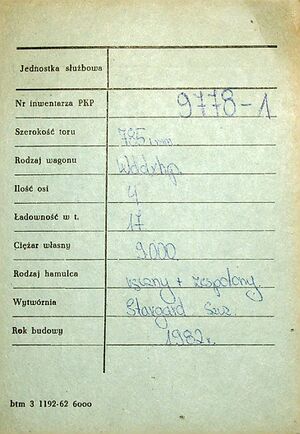 Jednostka służbowa
Nr inwentarza PKP 9778-1
Szerokość toru 785 mm
Rodzaj wagonu
Ilość osi 4
Ładowność w t. 17
Ciężar własny 9.000
Rodzaj hamulca ręczny + zespolony
Wytwórnia Stargard Szcz.
Rok budowy 1982 r.
btm 3 1192-62 6000